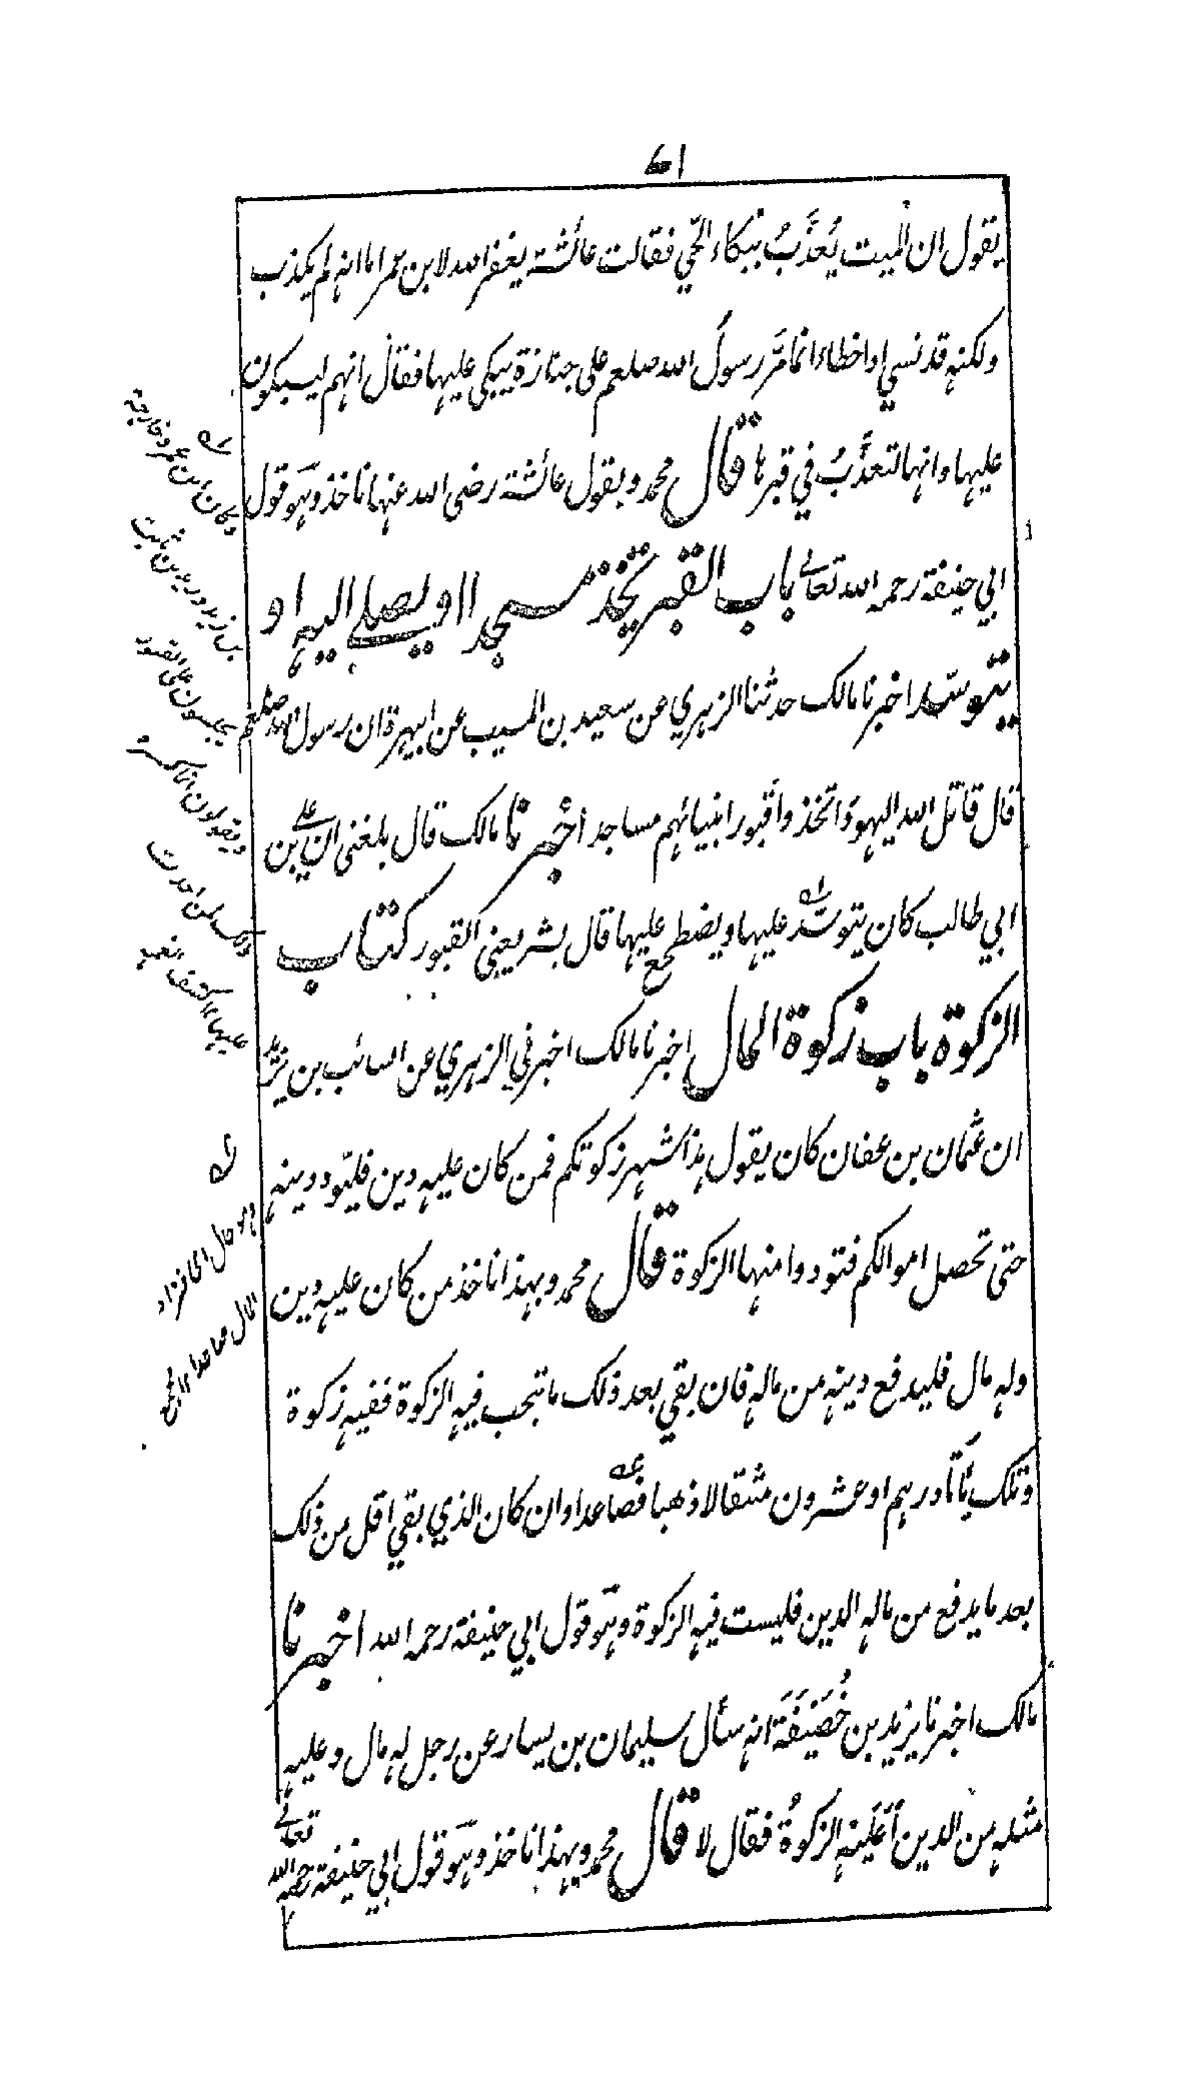 ١٧
يقول ان الميت يُعذَّبُ ببكاء الحَيِّ فقالت عائشة يغفر الله لابن عمر اما انه لم يكذب
ولكنه قد نسي او اخطاء انما مَرَّ رسولُ الله صلعم على جنازة يبكى عليها فقال انهم ليبكون
عليها وانها لتعذَّبُ في قبرها قال محمد وبقول عائشة رضى الله عنها ناخذ وهَو قول
ابي حنيفة رحمه الله تعالے باب القبر يتخذ مسجدا او يصلے اليه او
يتوسّد اخبرنا مالك حدثنا الزهري عن سعيد بن المسيب عن ابيهرة ان رسول الله صلعم
قال قاتل الله اليهود اتخذوا قبور انبيائهم مساجد اخبرنا مالك قال بلغنى ان علے بن
ابي طالب كان يتوسّد عليها ويضطجع عليها قال بشر يعنى القبور كتاب
الزكوة باب زكوة المال اخبرنا مالك اخبرني الزهري عن السائب بن يزيد
ان عثمان بن عفان كان يقول هذا شهر زكوتكم فمن كان عليه دين فليؤد دينه
حتى تحصل اموالكم فتودوا منها الزكوة قال محمد وبهذا ناخذ من كان عليه دين
وله مال فليدفع دينه من ماله فان بقي بعد ذلك ما تجب فيه الزكوة ففيه زكوة
وتلك مَأتا درهم او عشرون مثقالا ذهبا فصاعدا وان كان الذي بقي اقل من ذلك
بعد ما يدفع من ماله الدين فليست فيه الزكوة وهَو قول ابي حنيفة رحمه الله اخبرنا
مالك اخبرنا يزيد بن خُصَيفَة انه سأل سليمان بن يسار عن رجل له مال وعليه
مثله من الدين أعَلَيه الزكوةُ فقال لا قال محمد وبهذا ناخذ وهَو قول ابي حنيفة رحمه الله تعالے
وكان ابن عمر وخارجة
بن زيد وزيد بن ثابت
يجلسون على القبور
ويقولون انما كره
ذلك لمن احدث
عليها